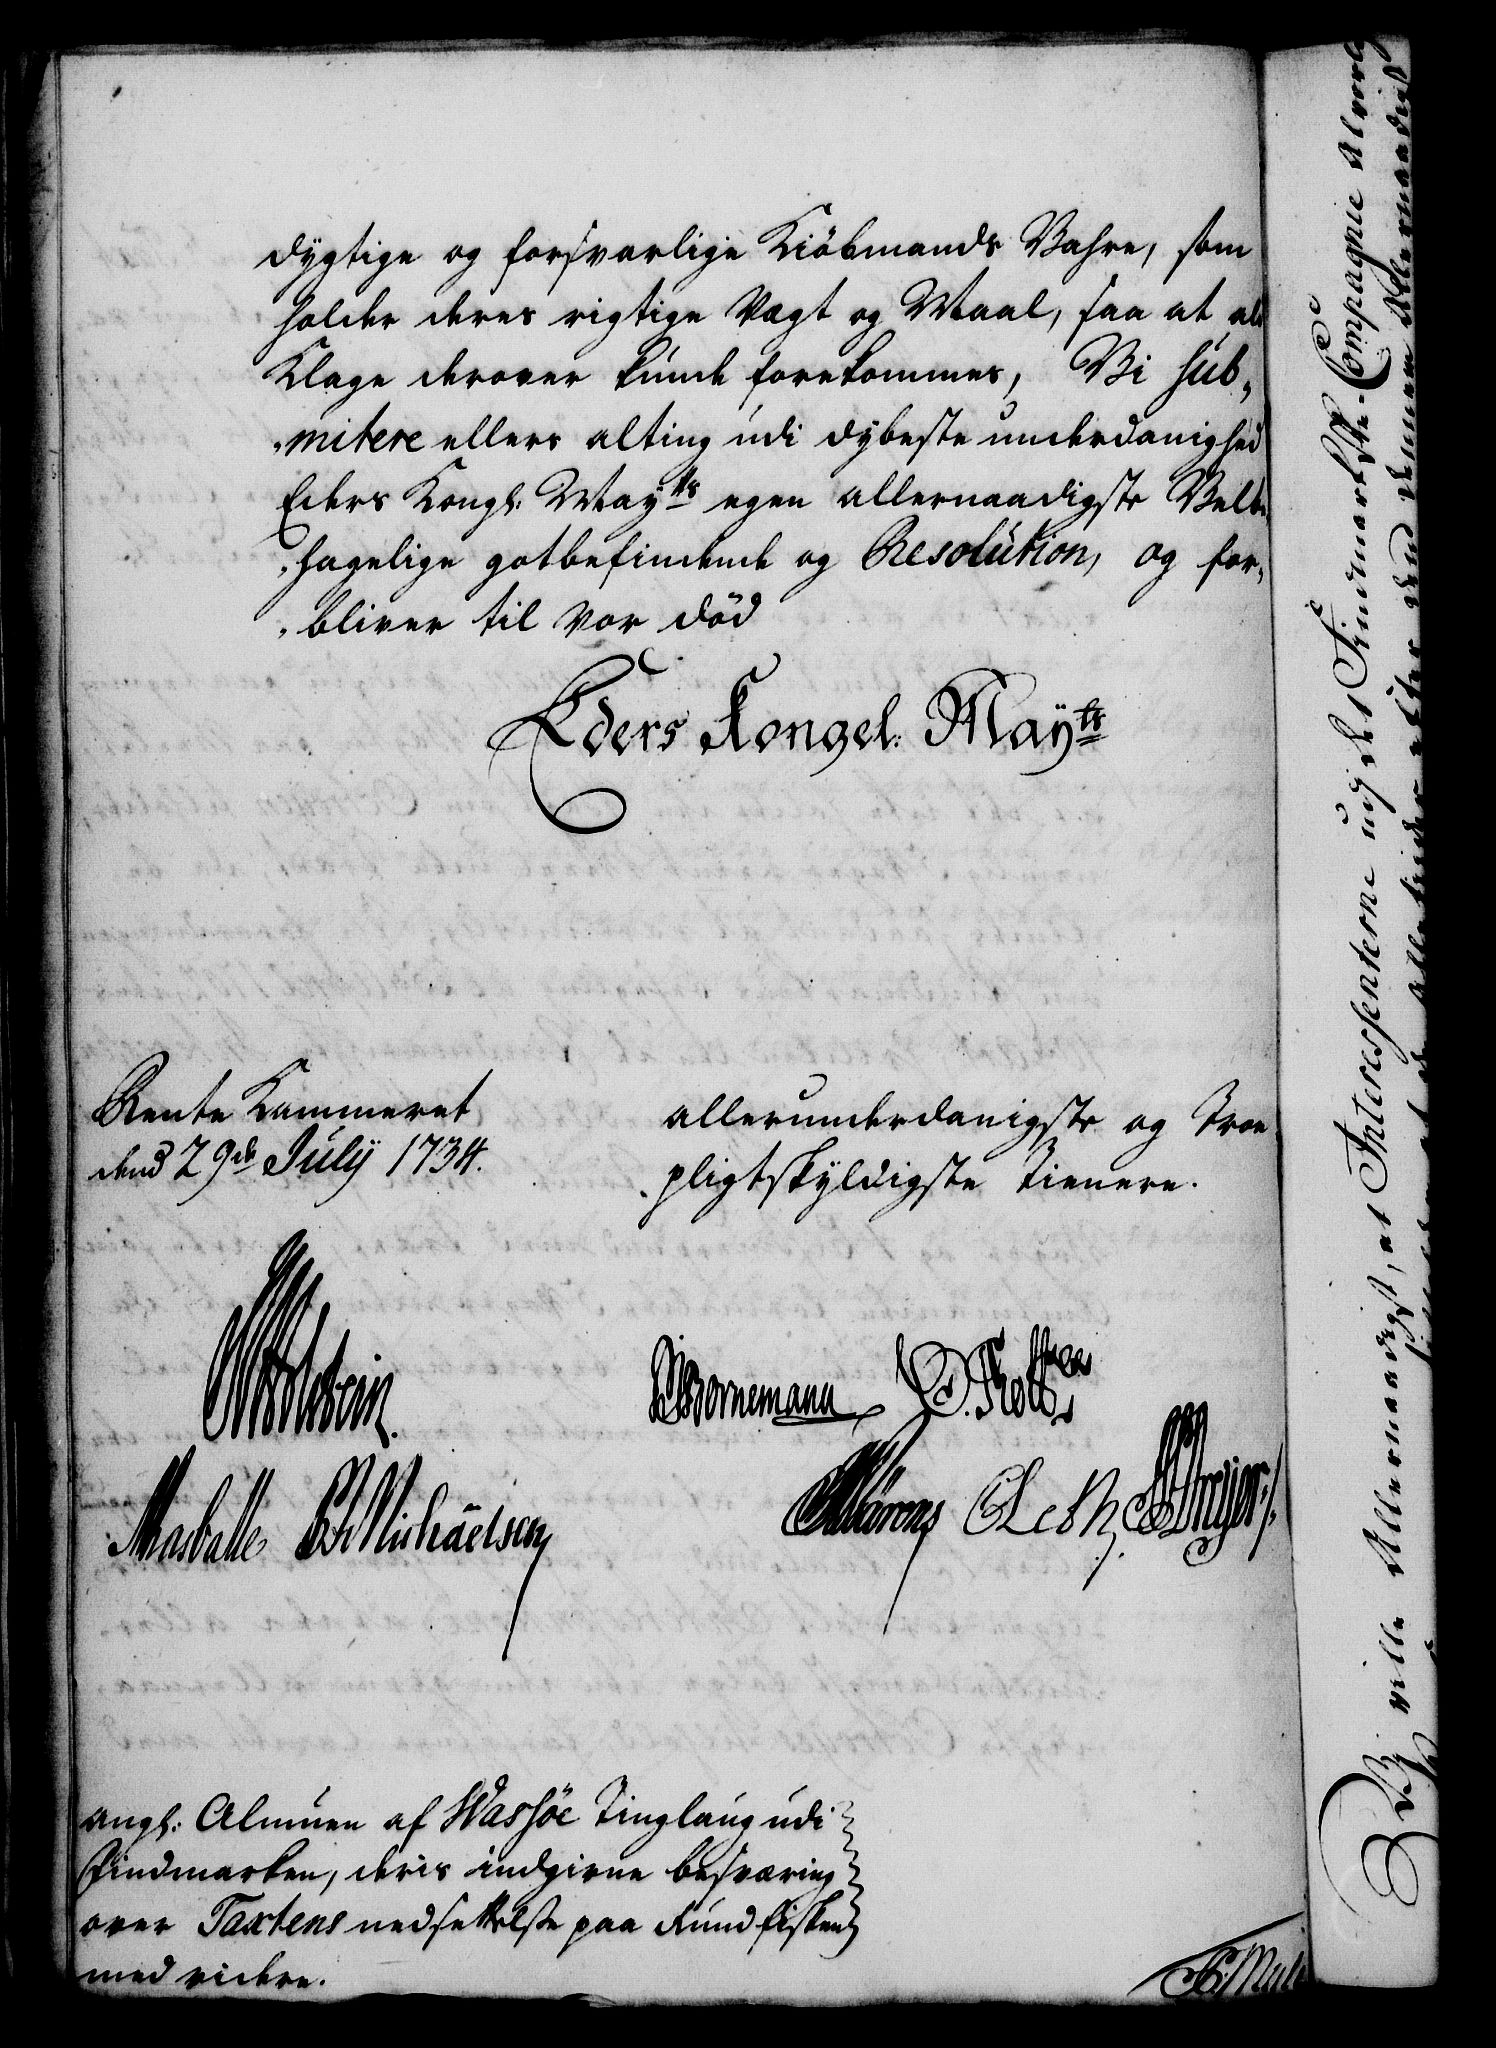 dygtige og forsvarlige Kiöbmands Vahre, som
holder deres rigtige Vægt og Maal, saa at al
Klage derover kunde forekommes, Vi sub-
mitere ellers alting udi dybeste underdanighed
Eders Kongl: Mayts egen allernaadigste Velbe-
hagelige gotbefindende og Resolution, og for-
bliver til vor död
Eders Kongel: Mayts
Rente Kammeret
dend 29de July 1734.
allerunderdanigste og Troe
pligtskyldigste Tienere.
Bornemann
Michäelsen
Dreyer
angl: Almuen af Wasföe Tinglaug udi
Findmarken, deris indgivne besværing
over Taxtens nedsettelse paa Rundfisken
med videre.
Vj ville Allernaadigst, at Interessenterne udj det Findmarkske Compagnie Alvorl